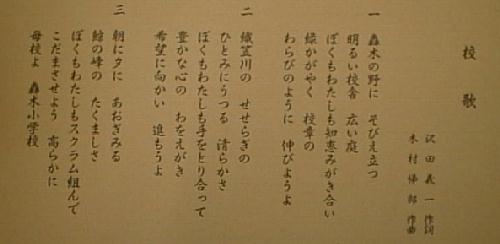 校歌
沢田義一 作詞
木村 郎 作曲
一 轟木の野に そびえ立つ
明るい校舎 広い庭
ぼくもわたしも知恵みがき合い
緑かがやく 校章の
わらびのように 伸びようよ
二 織笠川の せせらぎの
ひとみにうつる 清らかさ
ぼくもわたしも手をとり合って
豊かな心の わをえがき
希望に向かい 進もうよ
三 朝に夕に あおぎみる
鯨の峰の たくましさ
ぼくもわたしもスクラム組んで
こだまさせよう 高らかに
母校よ 轟木小学校